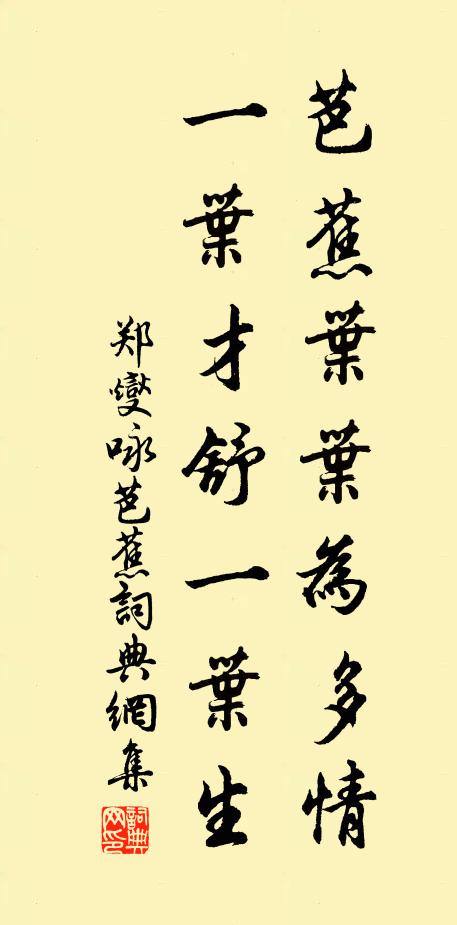 芭蕉葉葉為多情
一葉才舒一葉生
郑燮咏芭蕉詞典網集
詞典
网印